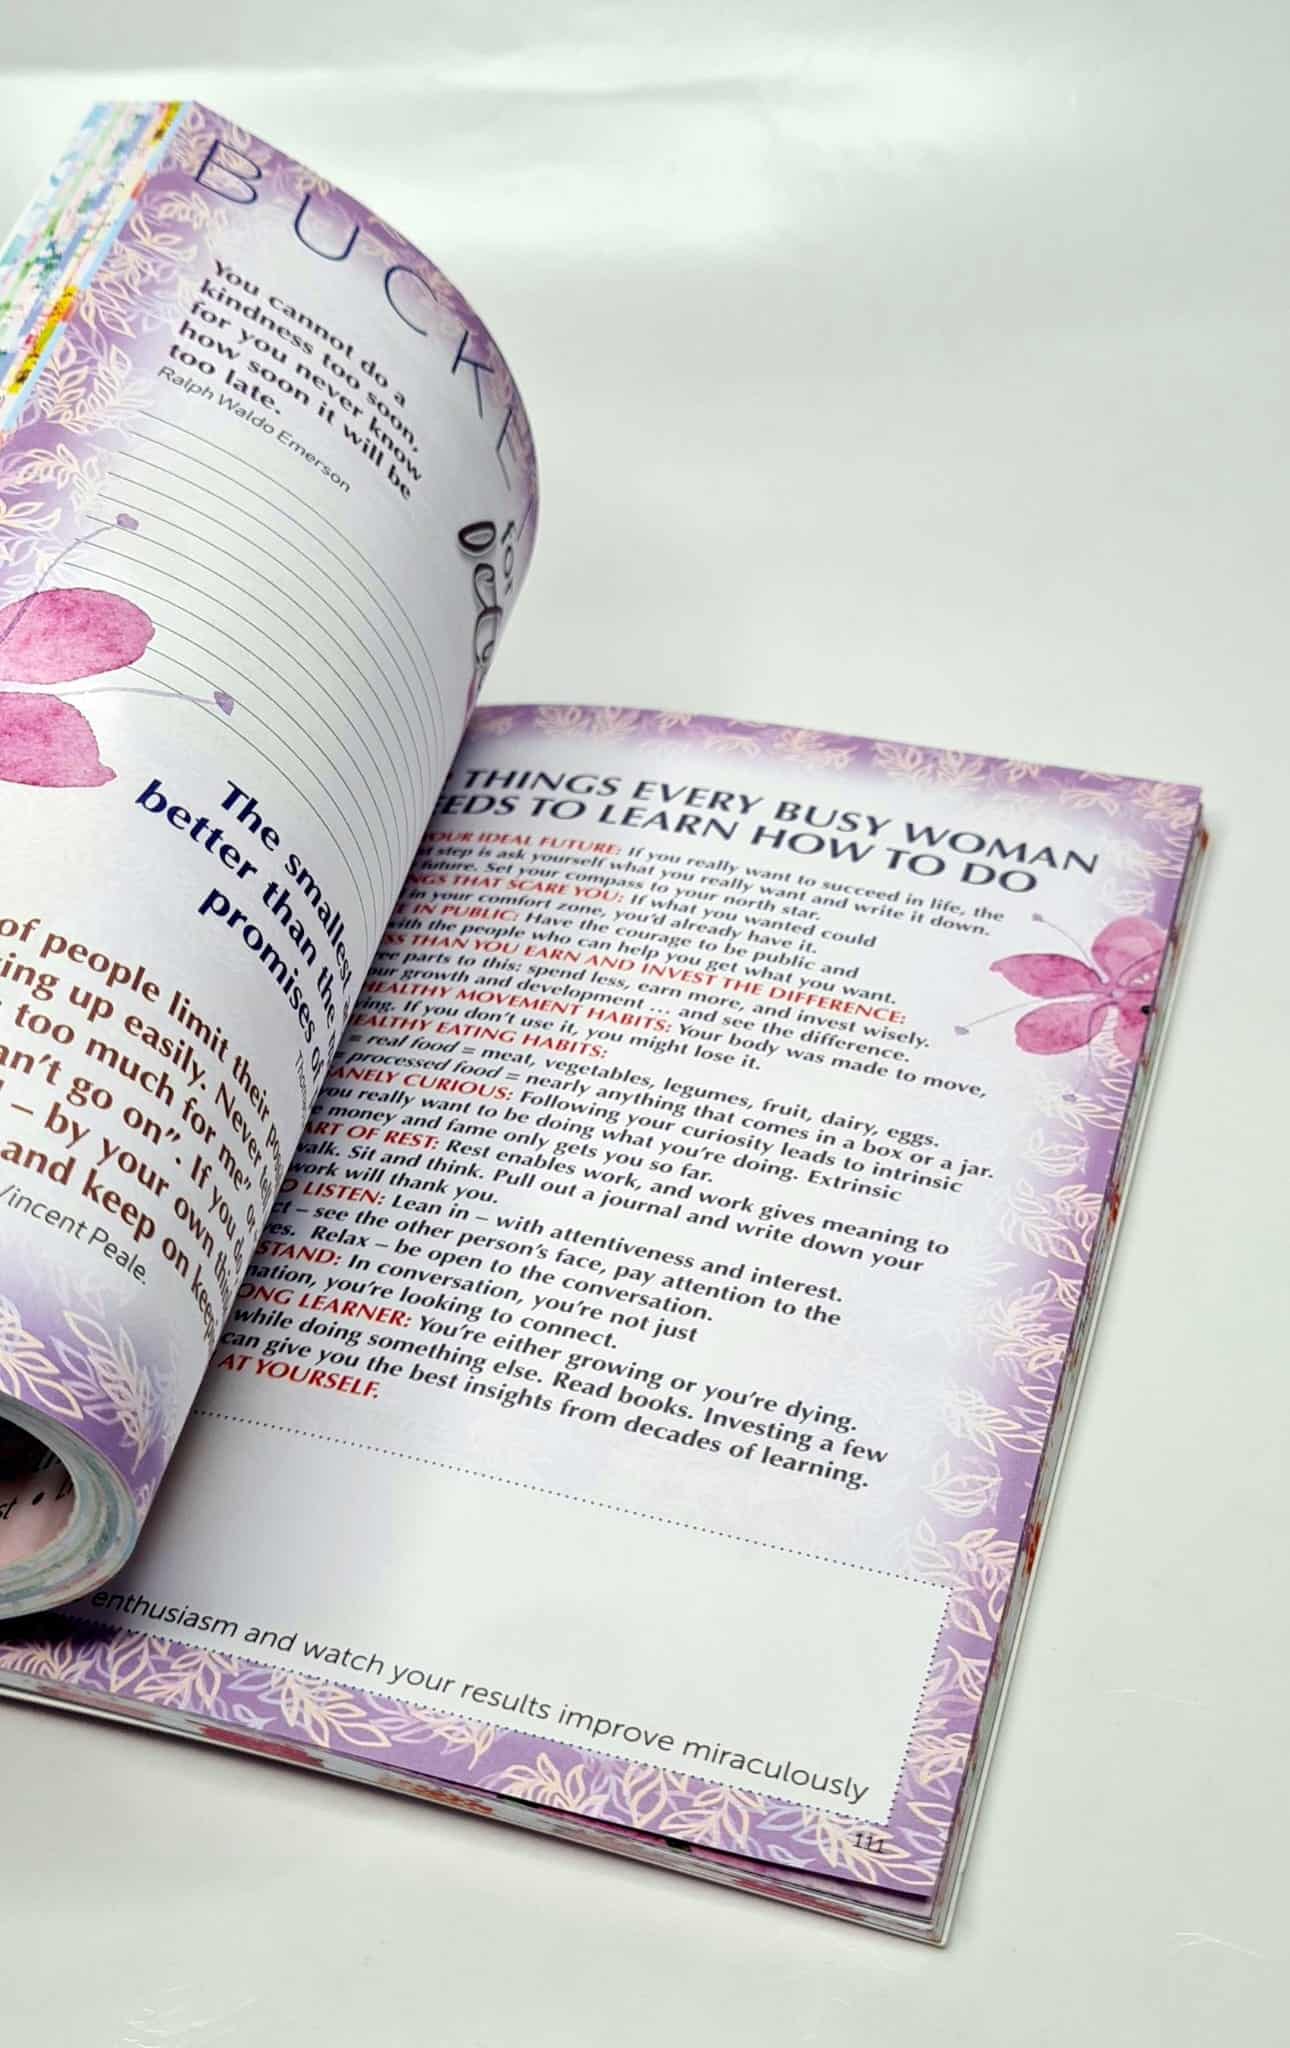 BUCKE
You cannot do a
kindness too soon,
for you never know
how soon it will be
too late.
Ralph Waldo Emerson
for
The smallest
better than the
promises of
of people limit their
up easily. Never
too much for me"
go on". If you do
– by your own
and keep on
Vincent Peale.
THINGS EVERY BUSY WOMAN
TO LEARN HOW TO DO
IDEAL FUTURE: If you really want to succeed in life, the
step is ask yourself what you really want and write it down.
future. Set your compass to your north star.
THAT SCARE YOU: If what you wanted could
in your comfort zone, you'd already have it.
IN PUBLIC: Have the courage to be public and
with the people who can help you get what you want.
THAN YOU EARN AND INVEST THE DIFFERENCE:
parts to this: spend less, earn more, and invest wisely.
growth and development ... and see the difference.
HEALTHY MOVEMENT HABITS: Your body was made to move,
If you don't use it, you might lose it.
HEALTHY EATING HABITS:
= real food = meat, vegetables, legumes, fruit, dairy, eggs.
= processed food = nearly anything that comes in a box or a jar.
CURIOUS: Following your curiosity leads to intrinsic
you really want to be doing what you're doing. Extrinsic
money and fame only gets you so far.
ART OF REST: Rest enables work, and work gives meaning to
walk. Sit and think. Pull out a journal and write down your
work will thank you.
TO LISTEN: Lean in – with attentiveness and interest.
– see the other person's face, pay attention to the
Relax – be open to the conversation.
STAND: In conversation, you're not just
you're looking to connect.
LEARNER: You're either growing or you're dying.
while doing something else. Read books. Investing a few
can give you the best insights from decades of learning.
AT YOURSELF.
enthusiasm and watch your results improve miraculously
111